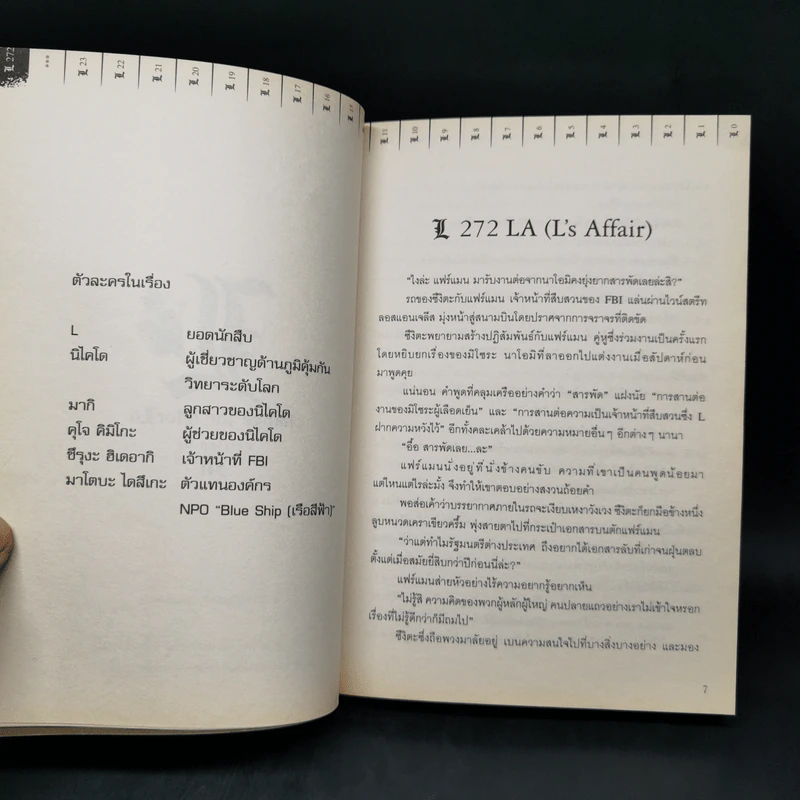 L 272
***
L 23
L 22
L 21
L 20
L 19
L 18
L 17
L 16
L 11
L 10
L 9
L 8
L 7
L 6
L 5
L 4
L 3
L 2
L 1
L 0
ตัวละครในเรื่อง
L ยอดนักสืบ
นิไคโด ผู้เชี่ยวชาญด้านภูมิคุ้มกัน
วิทยาระดับโลก
มากิ ลูกสาวของนิไคโด
คุโจ คิมิโกะ ผู้ช่วยของนิไคโด
ซึรุงะ ฮิเดอากิ เจ้าหน้าที่ FBI
มาโตบะ ไดสึเกะ ตัวแทนองค์กร
NPO “Blue Ship (เรือสีฟ้า)”
L 272 LA (L's Affair)
“ไงล่ะ แฟร์แมน มารับงานต่อจากนาโอมิคงยุ่งยากสารพัดเลยล่ะสิ?”
รถของซึงิตะกับแฟร์แมน เจ้าหน้าที่สืบสวนของ FBI แล่นผ่านไวน์สตรีท
ลอสแอนเจลีส มุ่งหน้าสู่สนามบินโดยปราศจากการจราจรที่ติดขัด
ซึงิตะพยายามสร้างปฏิสัมพันธ์กับแฟร์แมน คู่หูซึ่งร่วมงานเป็นครั้งแรก
โดยหยิบยกเรื่องของมิโซระ นาโอมิที่ลาออกไปแต่งงานเมื่อสัปดาห์ก่อน
มาพูดคุย
แน่นอน คำพูดที่คลุมเครืออย่างคำว่า “สารพัด” แฝงนัย “การสานต่อ
งานของมิโซระผู้เลือดเย็น” และ “การสานต่อความเป็นเจ้าหน้าที่สืบสวนซึ่ง L
ฝากความหวังไว้” อีกทั้งคละเคล้าไปด้วยความหมายอื่นๆ อีกต่างๆ นานา
“อื้อ สารพัดเลย...ละ”
แฟร์แมนนั่งอยู่ที่นั่งข้างคนขับ ความที่เขาเป็นคนพูดน้อยมา
แต่ไหนแต่ไรล่ะมั้ง จึงทำให้เขาตอบอย่างสงวนถ้อยคำ
พอส่อเค้าว่าบรรยากาศภายในรถจะเงียบเหงาวังเวง ซึงิตะก็ยกมือข้างหนึ่ง
ลูบหนวดเคราเขียวครึ้ม พุ่งสายตาไปที่กระเป๋าเอกสารบนตักแฟร์แมน
“ว่าแต่ทำไมรัฐมนตรีต่างประเทศ ถึงอยากได้เอกสารลับที่เก่าจนฝุ่นตลบ
ตั้งแต่เมื่อสมัยยี่สิบกว่าปีก่อนนี่ล่ะ?”
แฟร์แมนส่ายหัวอย่างไร้ความอยากรู้อยากเห็น
“ไม่รู้สิ ความคิดของพวกผู้หลักผู้ใหญ่ คนปลายแถวอย่างเราไม่เข้าใจหรอก
เรื่องที่ไม่รู้ดีกว่าก็มีถมไป”
ซึงิตะซึ่งถือพวงมาลัยอยู่ เบนความสนใจไปที่บางสิ่งบางอย่าง และมอง
7